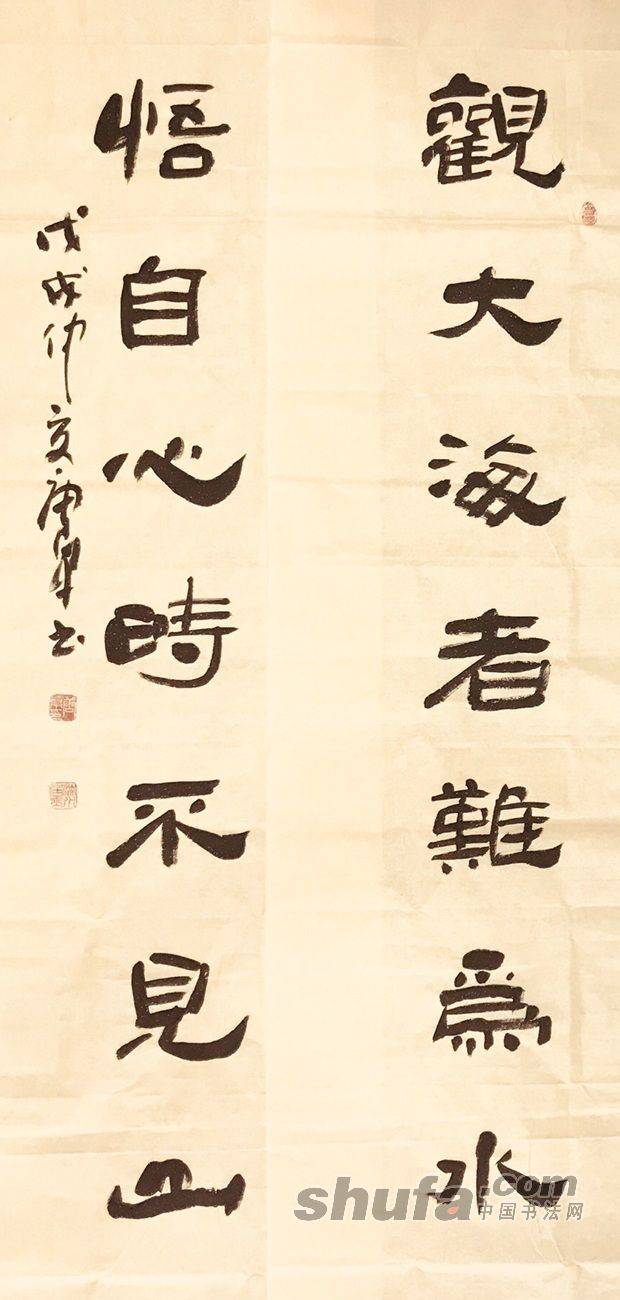 觀大海者難為水
悟自心時不見山
戊戌仲夏唐軍书
shufa.com
中国书法网